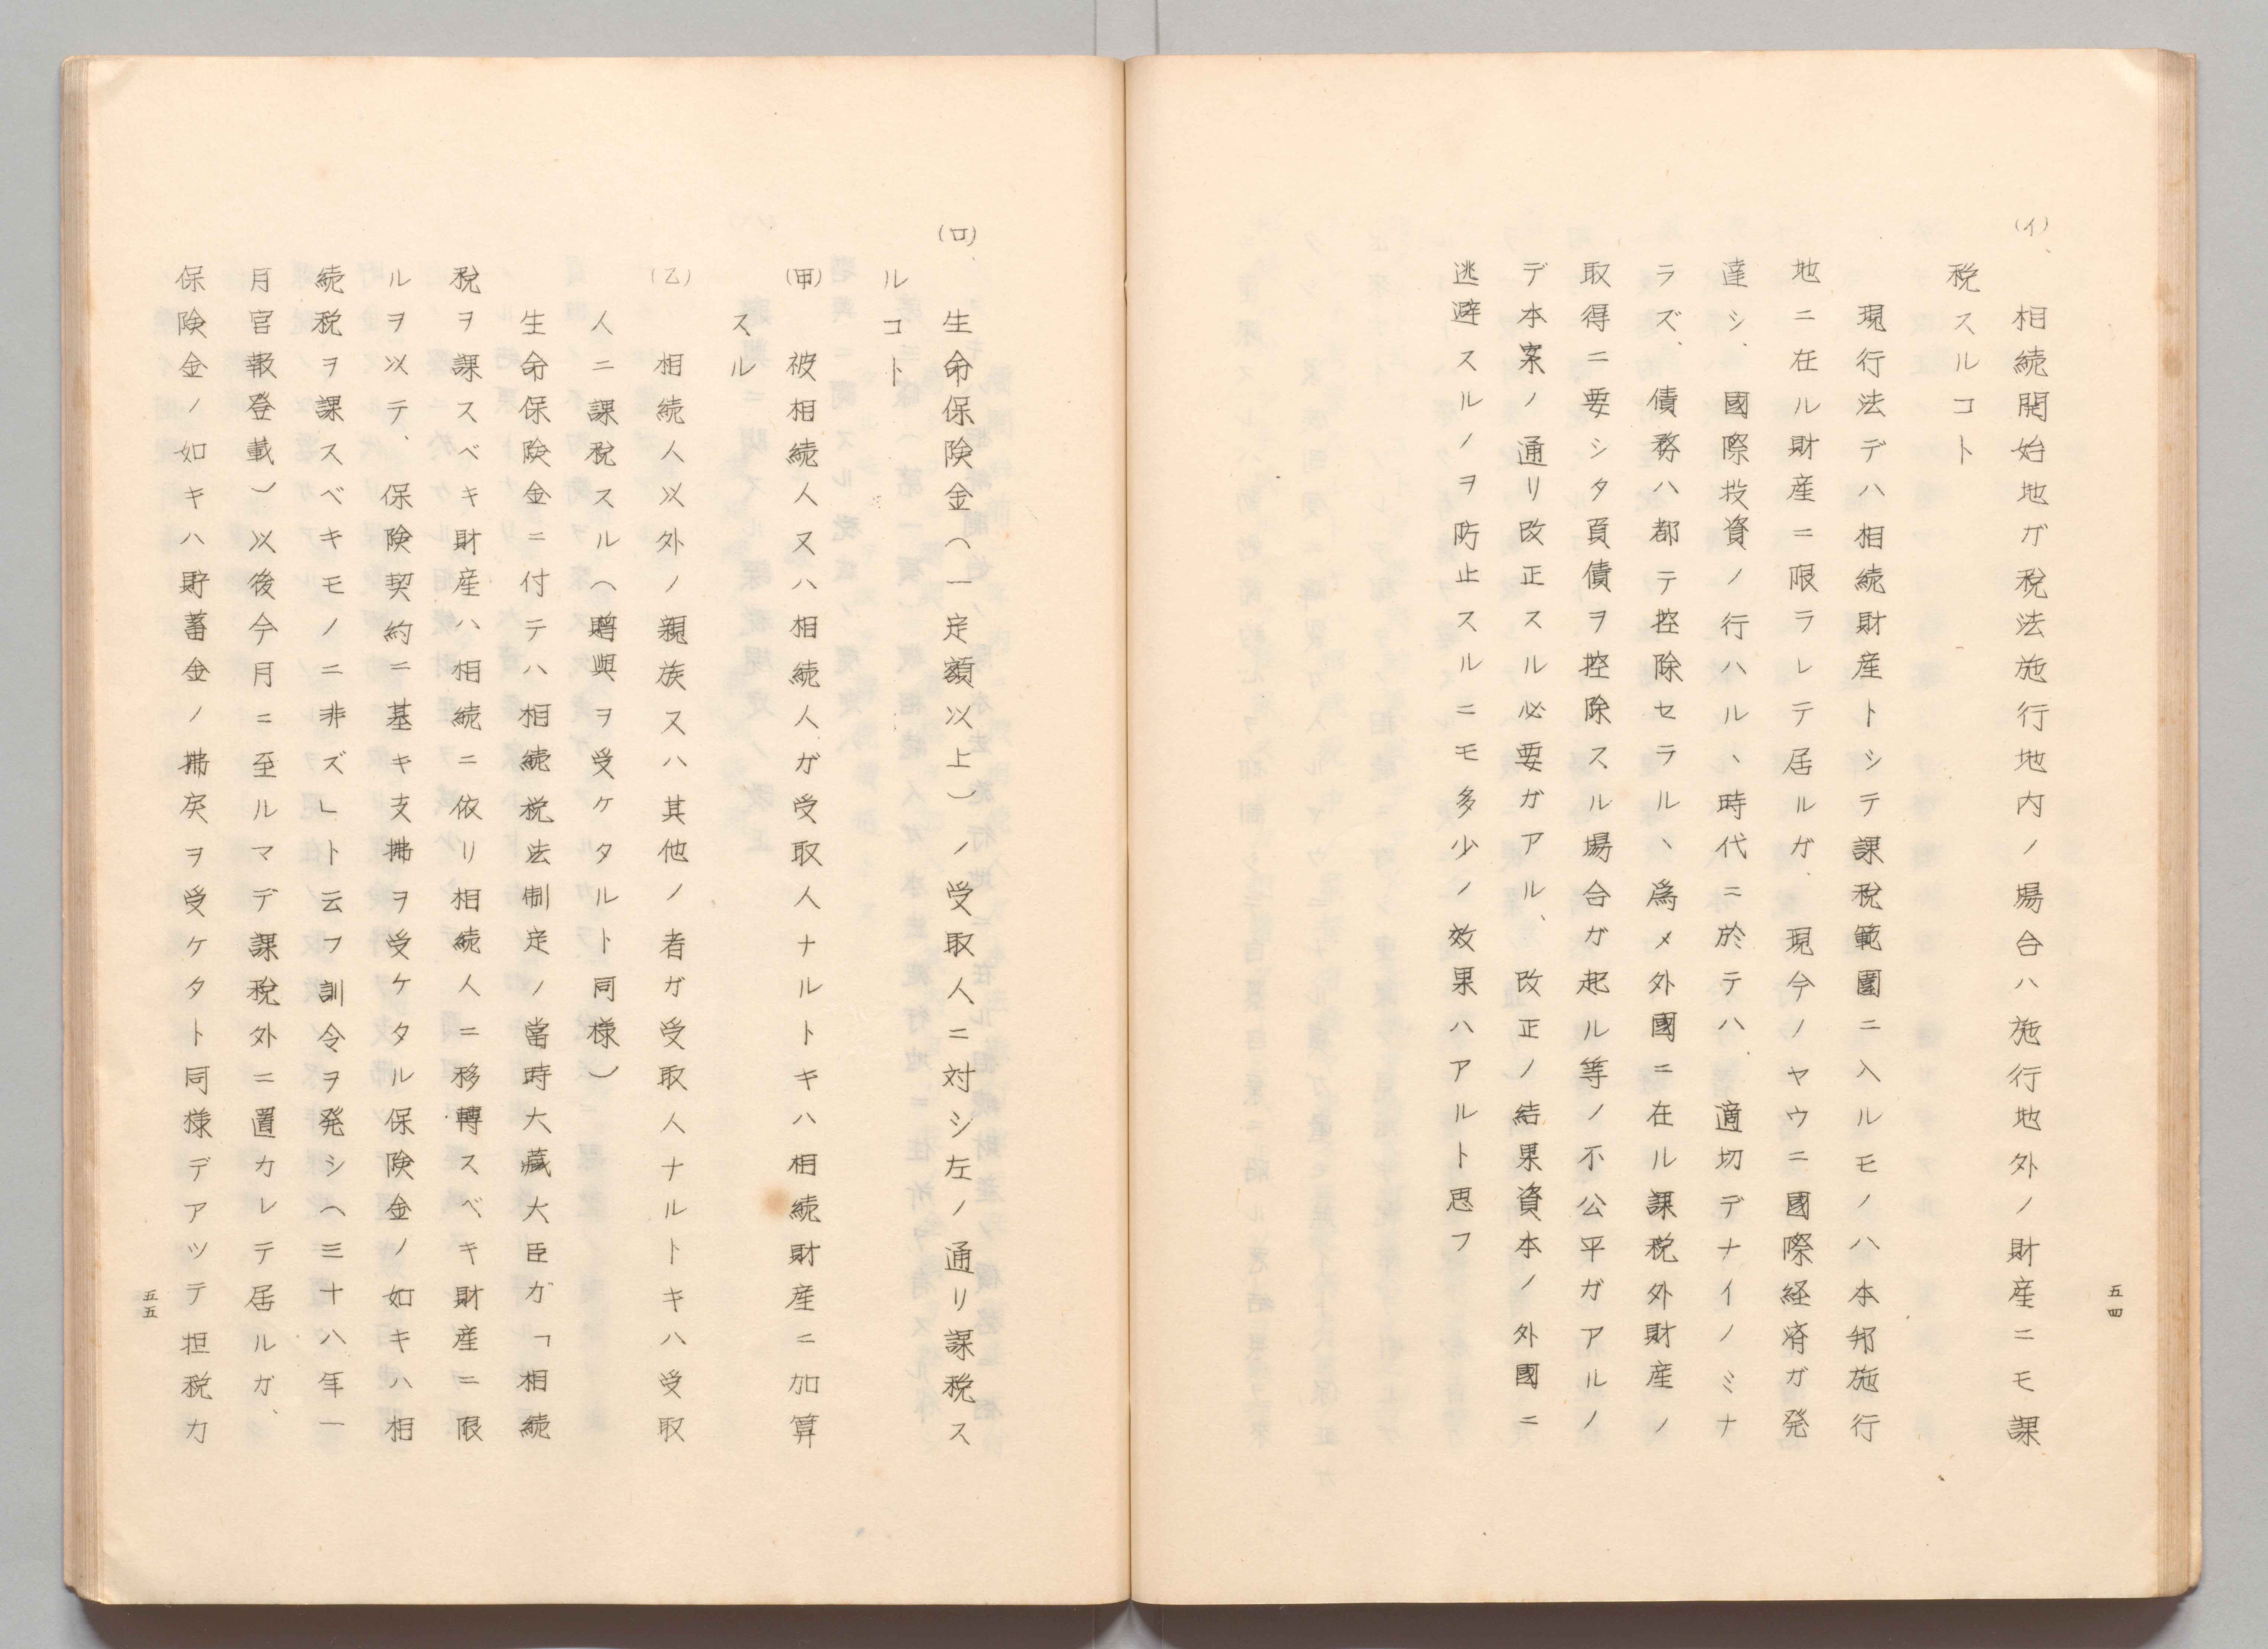 五四
(イ)、相続開始地ガ税法施行地内ノ場合ハ施行地外ノ財産ニモ課
税スルコト
現行法デハ相続財産トシテ課税範圍ニ入ルモノハ本邦施行
地ニ在ル財産ニ限ラレテ居ルガ、現今ノヤウニ國際経済ガ発
達シ、國際投資ノ行ハルヽ時代ニ於テハ、適切デナイノミナ
ラズ、債務ハ都テ控除セラルヽ爲メ外國ニ在ル課税外財産ノ
取得ニ要シタ負債ヲ控除スル場合ガ起ル等ノ不公平ガアルノ
デ本案ノ通リ改正スル必要ガアル、改正ノ結果資本ノ外國ニ
逃避スルノヲ防止スルニモ多少ノ效果ハアルト思フ
(ロ)、生命保険金(一定額以上)ノ受取人ニ対シ左ノ通リ課税ス
ルコト
(甲) 被相続人又ハ相続人ガ受取人ナルトキハ相続財産ニ加算
スル
(乙) 相続人以外ノ親族又ハ其他ノ者ガ受取人ナルトキハ受取
人ニ課税スル(贈與ヲ受ケタルト同様)
生命保険金ニ付テハ相続税法制定ノ當時大藏大臣ガ「相続
税ヲ課スベキ財産ハ相続ニ依リ相続人ニ移轉スベキ財産ニ限
ルヲ以テ、保険契約ニ基キ支拂ヲ受ケタル保険金ノ如キハ相
続税ヲ課スベキモノニ非ズ」ト云フ訓令ヲ発シ(三十八年一
月官報登載)以後今月ニ至ルマデ課税外ニ置カレテ居ルガ、
保険金ノ如キハ貯蓄金ノ拂戻ヲ受ケタト同様デアツテ担税力
五五